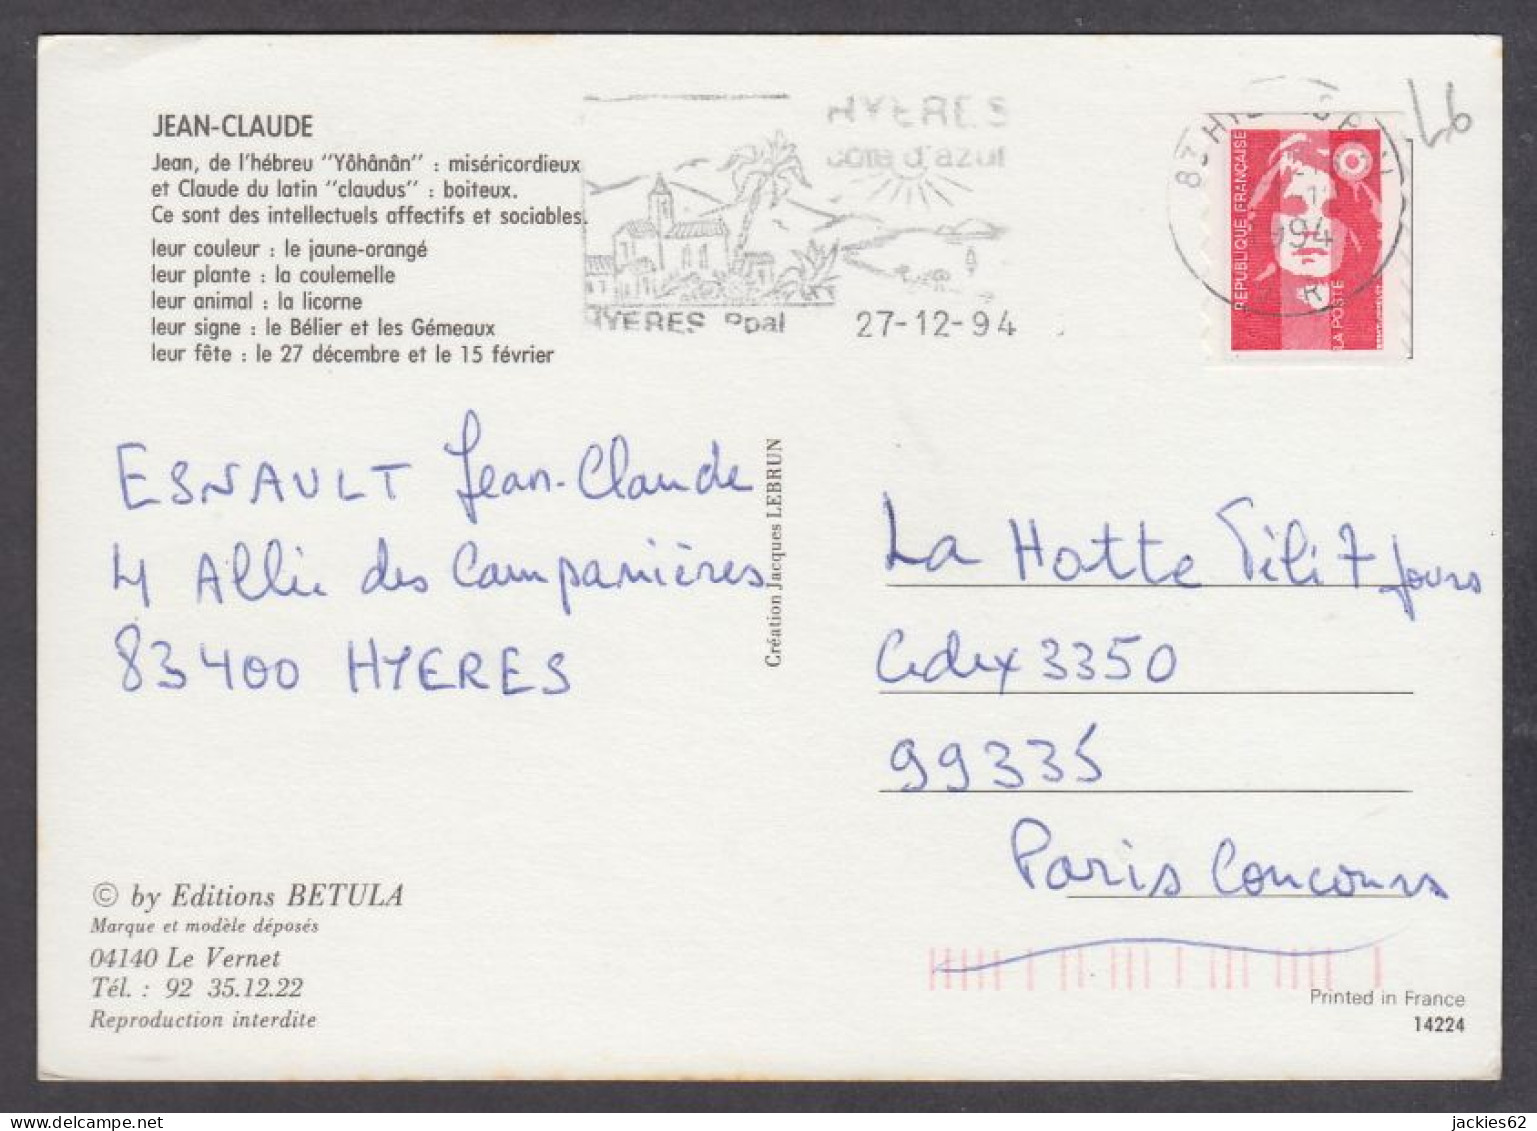 JEAN-CLAUDE
Jean, de l'hébreu "Yôhânân" : miséricordieux
et Claude du latin "claudus" : boiteux.
Ce sont des intellectuels affectifs et sociables.
leur couleur : le jaune-orangé
leur plante : la coulemelle
leur animal : la licorne
leur signe : le Bélier et les Gémeaux
leur fête : le 27 décembre et le 15 février
HYERES
cote d'azur
HYERES ppal 27-12-94
83 HYERES
994
REPUBLIQUE FRANÇAISE
LA POSTE
46
ESNAULT Jean-Claude
4 Allée des Campanières
83400 HYERES
Création Jacques LEBRUN
La Hotte Télé 7 Jours
Cedex 3350
99335
Paris Concours
© by Editions BETULA
Marque et modèle déposés
04140 Le Vernet
Tél. : 92 35.12.22
Reproduction interdite
Printed in France
14224
jackies62